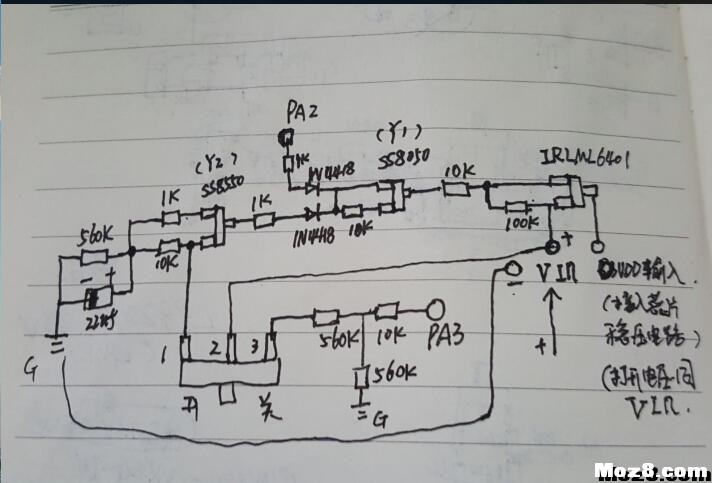 PA2
1K
(Y1)
SS8050
IRLML6401
(Y2)
SS8550
1N4148
10K
1K
1K
560K
10K
1N4148
10K
100K
- +
+
VIN
-
输入
(接入芯片
稳压电路)
(打开电压同
VIN.
+
G
1 2 3
560K
10K
PA3
560K
G
开 关
Moz8.com